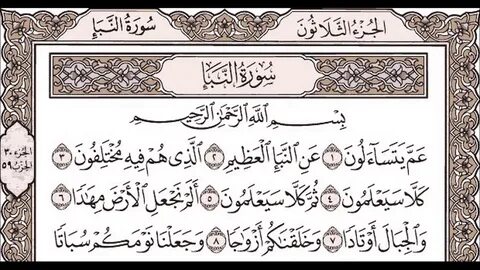 الجُزْءُ الثَّلَاثُونَ سُورَةُ النَّبَإِ
سُورَةُ النَّبَإِ
بِسْمِ اللَّهِ الرَّحْمَٰنِ الرَّحِيمِ
عَمَّ يَتَسَاءَلُونَ ١ عَنِ النَّبَإِ الْعَظِيمِ ٢ الَّذِي هُمْ فِيهِ مُخْتَلِفُونَ ٣
كَلَّا سَيَعْلَمُونَ ٤ ثُمَّ كَلَّا سَيَعْلَمُونَ ٥ أَلَمْ نَجْعَلِ الْأَرْضَ مِهَادًا ٦
وَالْجِبَالَ أَوْتَادًا ٧ وَخَلَقْنَاكُمْ أَزْوَاجًا ٨ وَجَعَلْنَا نَوْمَكُمْ سُبَاتًا
الجزء ٣٠
الحزب ٥٩